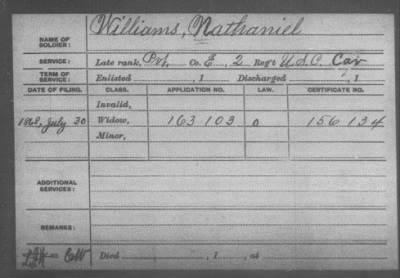 NAME OF SOLDIER: Williams, Nathaniel
SERVICE: Late rank, Pvt, Co. E, 2 Reg't U.S.C. Cav
TERM OF SERVICE: Enlisted , 1 Discharged , 1
DATE OF FILING. CLASS. APPLICATION NO. LAW. CERTIFICATE NO.
Invalid,
1868, July 30 Widow, 163 103 0 156 134
Minor,
ADDITIONAL SERVICES:
REMARKS:
CW Died , 1 , at